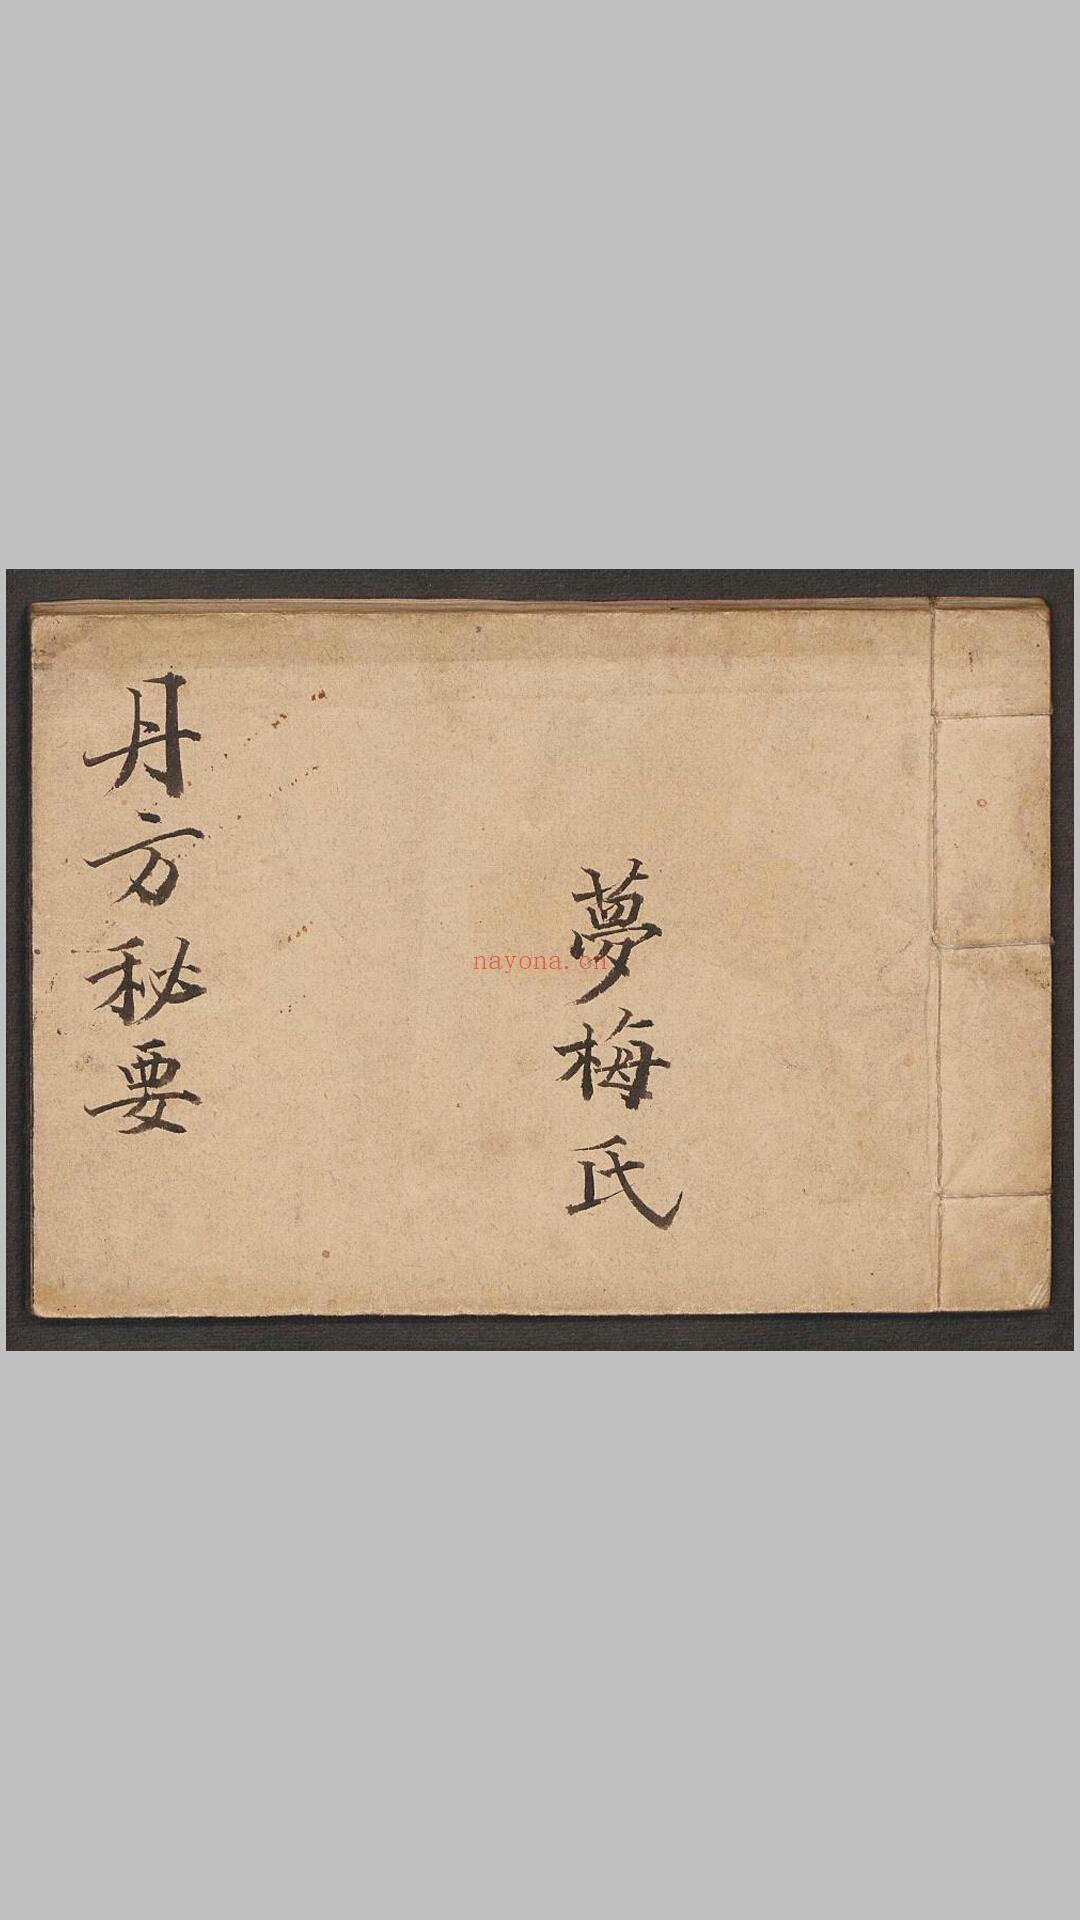 夢梅氏
丹方秘要
nayona.cn